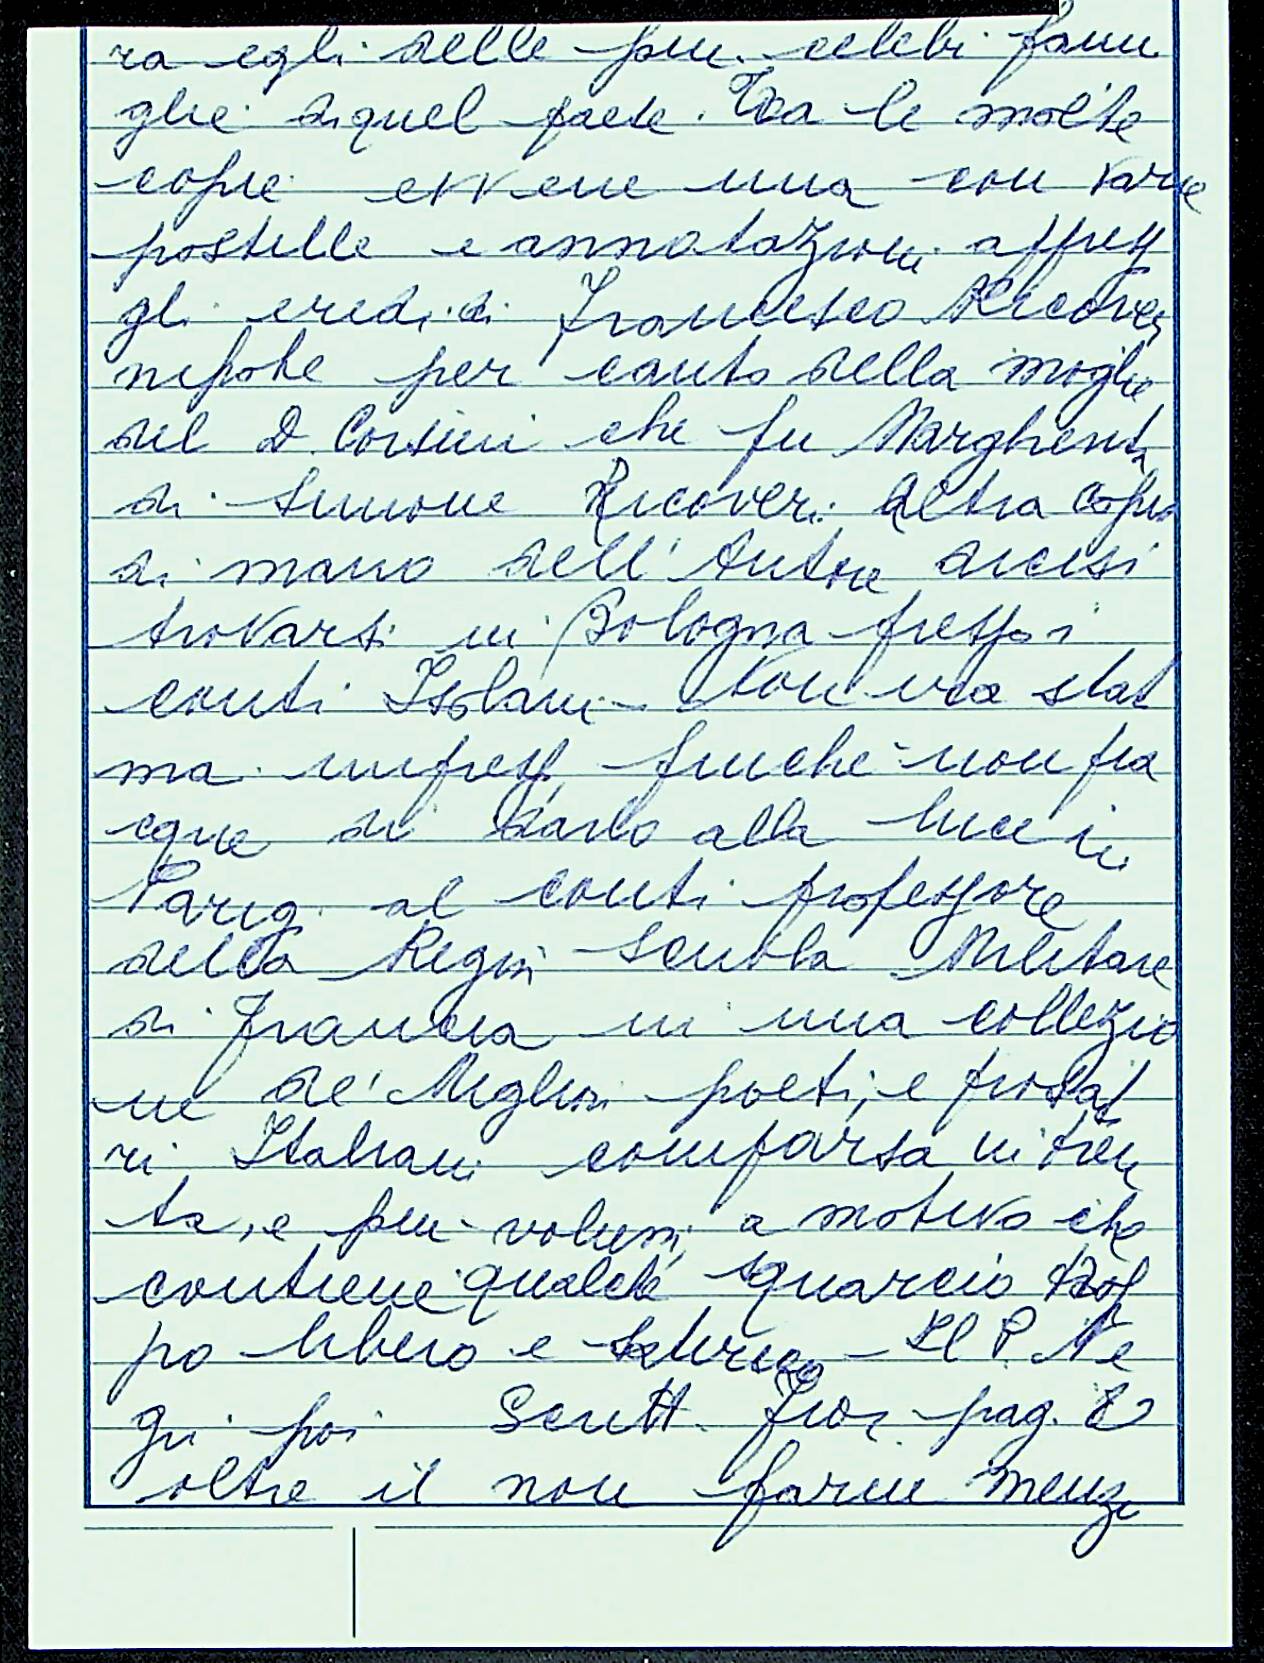 ra egli delle piu celebi fami
glie di quel paese. Tra le molte
copie evvene una con varie
postille e annotazioni appress
gli eredi di Francesco Ricoveri
nipote per canto della moglie
del D. Corsini che fu Margherita
di Simone Ricoveri. Altra copia
di mano dell'Autore dicesi
trovarsi in Bologna presso i
conti Isolani - Non era stat
ma impress finché non pia
cque di darlo alla luce in
Parigi al conti professore
della Regia Scuola Militare
di Francia in una collezio
ne de' Migliori poeti, e prosat
ri Italiani comparsa in tren
ta, e piu volumi a motivo che
contiene qualche squarcio trop
po libero e satirico - Il P. Ne
gri poi Scritt. Fior. pag.
oltre il non farne menzi